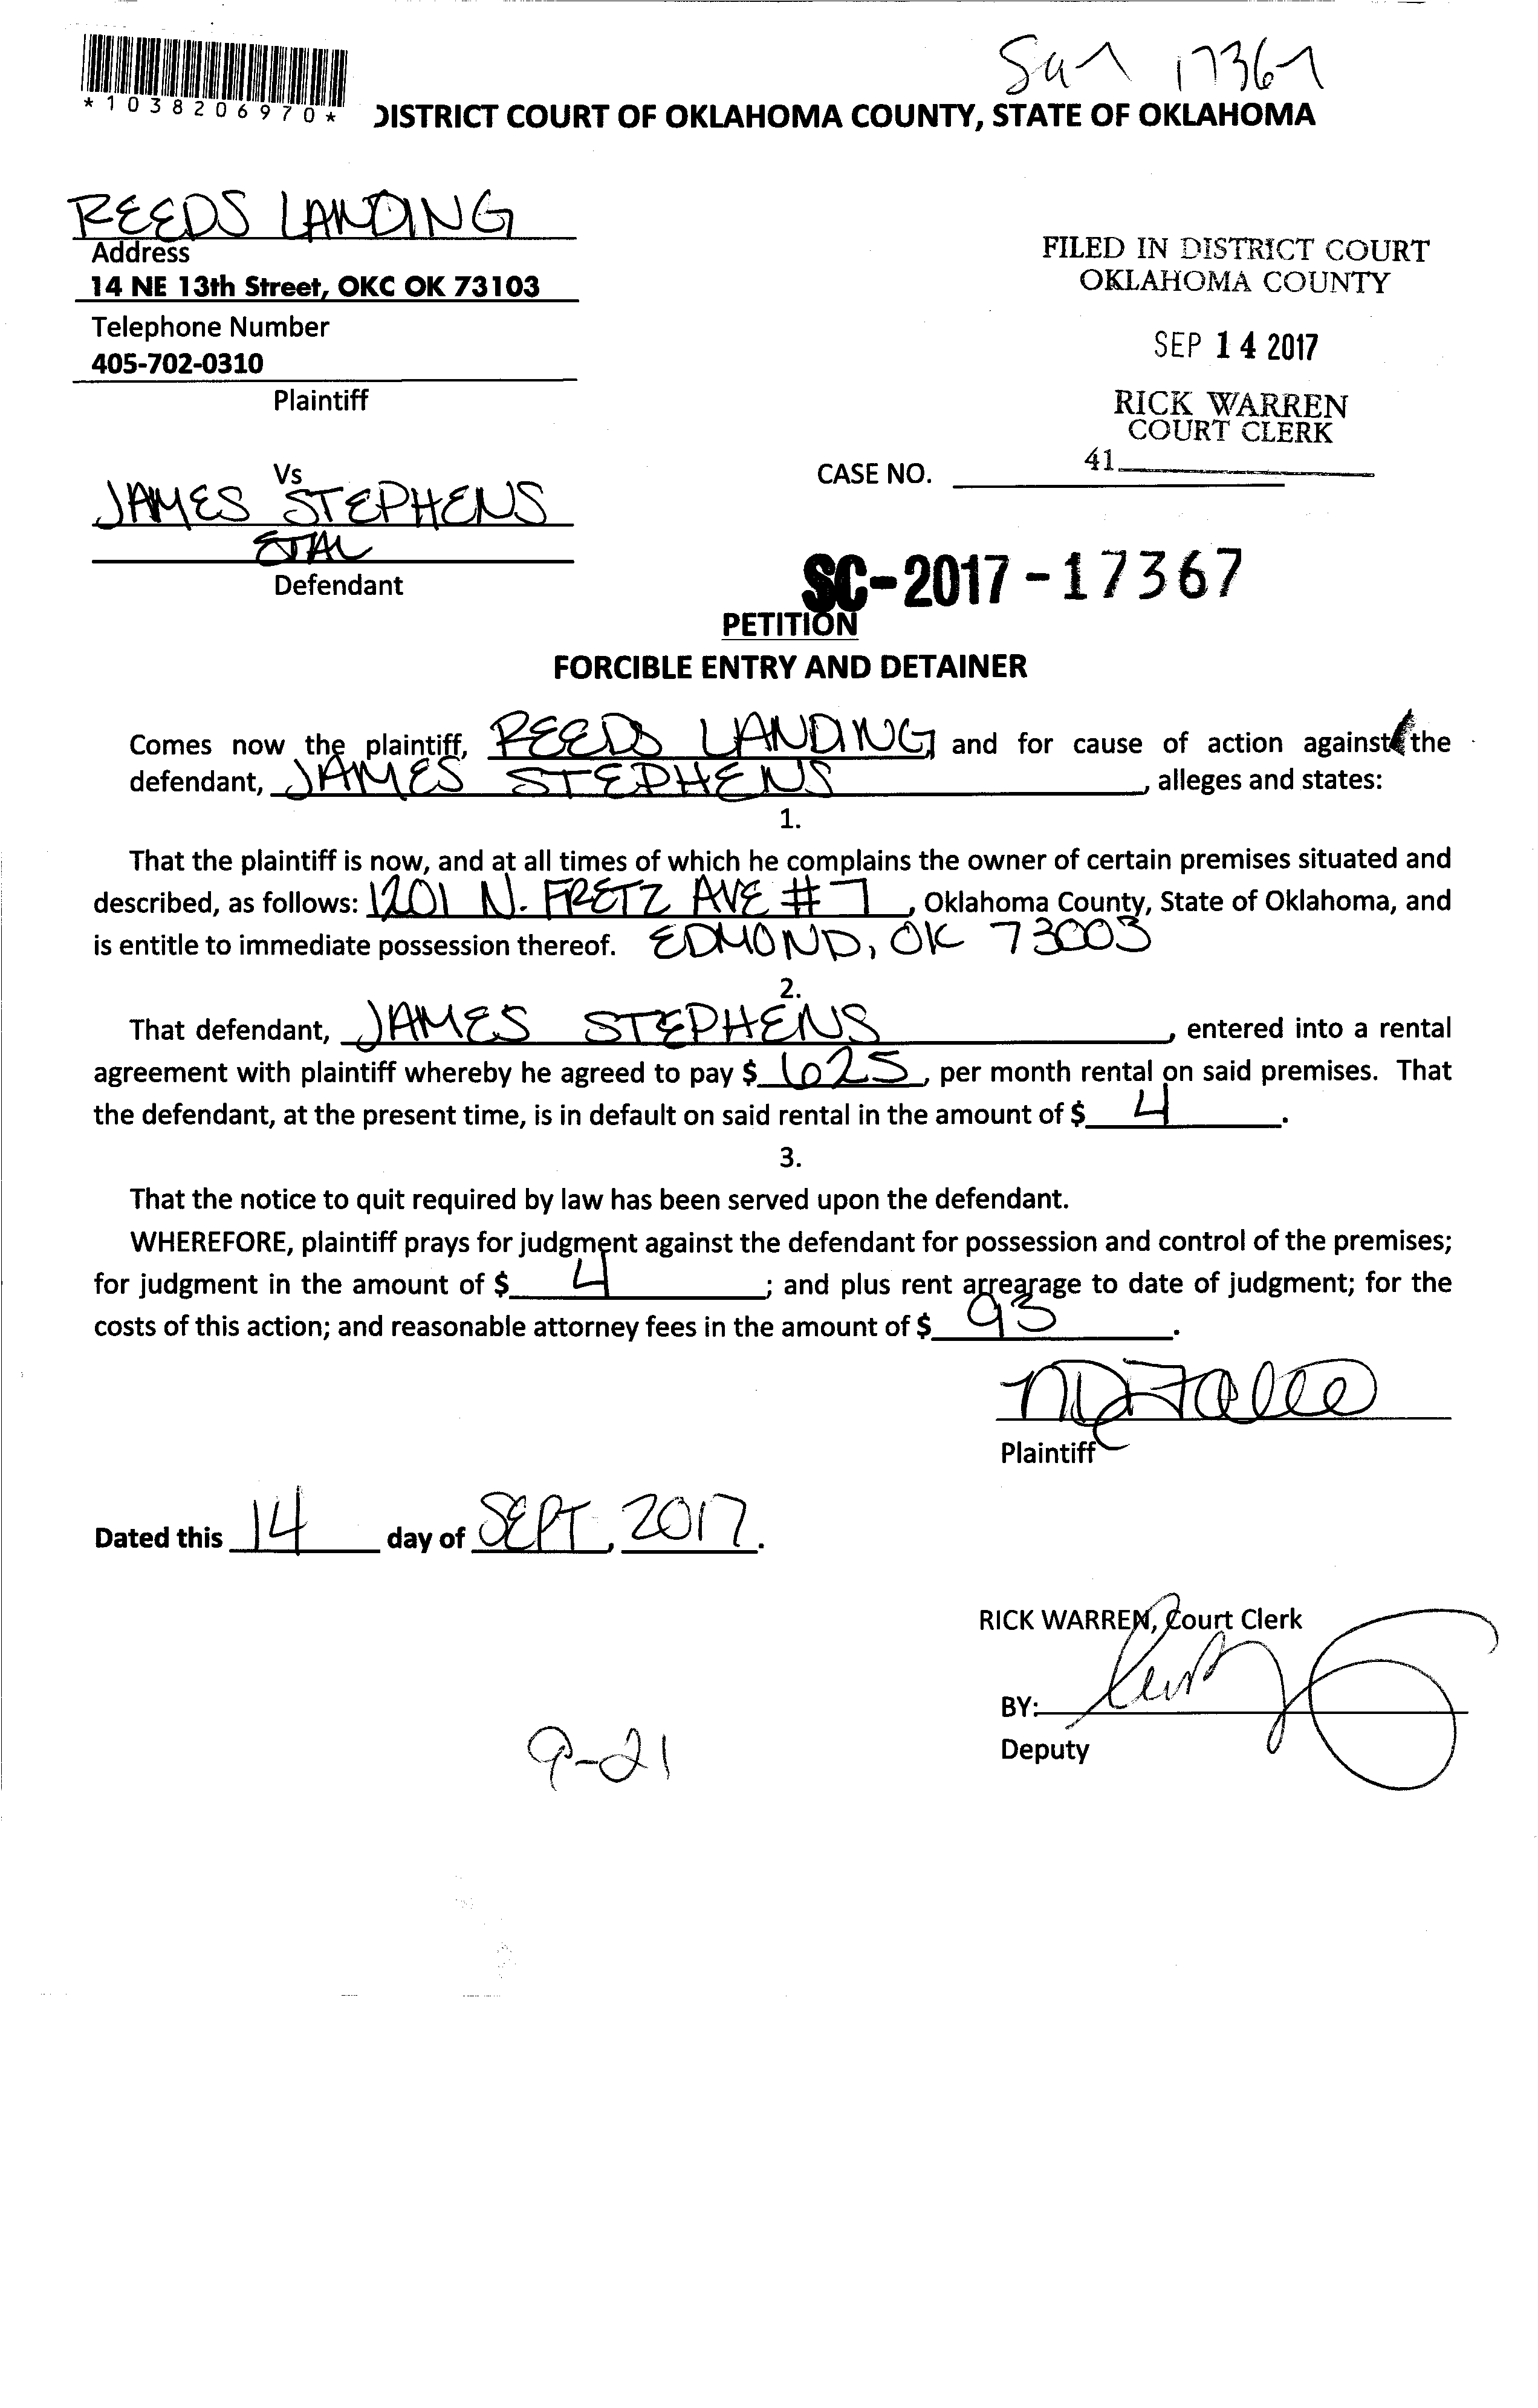 17367
*1038206970*
DISTRICT COURT OF OKLAHOMA COUNTY, STATE OF OKLAHOMA
REEDS LANDING
Address
14 NE 13th Street, OKC OK 73103
Telephone Number
405-702-0310
Plaintiff
FILED IN DISTRICT COURT
OKLAHOMA COUNTY
SEP 14 2017
RICK WARREN
COURT CLERK
41
Vs
JAMES STEPHENS
ETAL
Defendant
CASE NO.
SC-2017-17367
PETITION
FORCIBLE ENTRY AND DETAINER
Comes now the plaintiff, REEDS LANDING and for cause of action against the
defendant, JAMES STEPHENS, alleges and states:
1.
That the plaintiff is now, and at all times of which he complains the owner of certain premises situated and
described, as follows: 1201 N. FRETZ AVE #7, Oklahoma County, State of Oklahoma, and
is entitle to immediate possession thereof. EDMOND, OK 73003
2.
That defendant, JAMES STEPHENS, entered into a rental
agreement with plaintiff whereby he agreed to pay $ 625, per month rental on said premises. That
the defendant, at the present time, is in default on said rental in the amount of $ 4.
3.
That the notice to quit required by law has been served upon the defendant.
WHEREFORE, plaintiff prays for judgment against the defendant for possession and control of the premises;
for judgment in the amount of $ 4; and plus rent arrearage to date of judgment; for the
costs of this action; and reasonable attorney fees in the amount of $ 93.
Plaintiff
Dated this 14 day of SEPT, 2017.
RICK WARREN, Court Clerk
BY:
Deputy
9-21